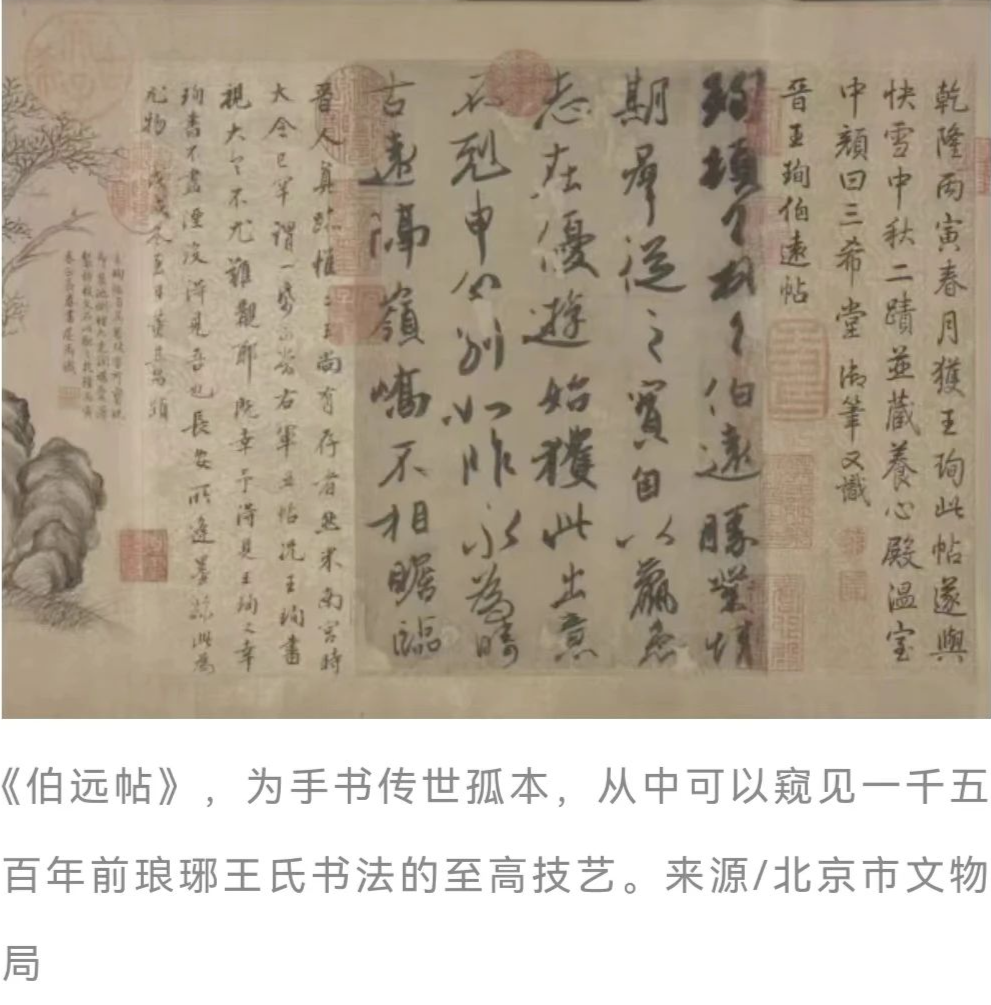 乾隆丙寅春月獲王珣此帖遂與
快雪中秋二蹟並藏養心殿温室
中顔曰三希堂御筆又識
晉王珣伯遠帖
珣頓首頓首伯遠勝業情
期羣從之寶自以羸患
志在優遊始獲此出意
不剋申分别如昨永為疇
古遠隔嶺嶠不相瞻臨
晉人真跡惟二王尚有存者然米南宮時
大令已罕謂一紙可當右軍五帖況王珣書
視大令不尤難覯耶既幸予得見王珣又幸
珣書不盡湮沒得見吾也長安所逢墨跡此為
尤物 戊戌冬至日董其昌題
《伯远帖》，为手书传世孤本，从中可以窥见一千五
百年前琅琊王氏书法的至高技艺。来源/北京市文物
局